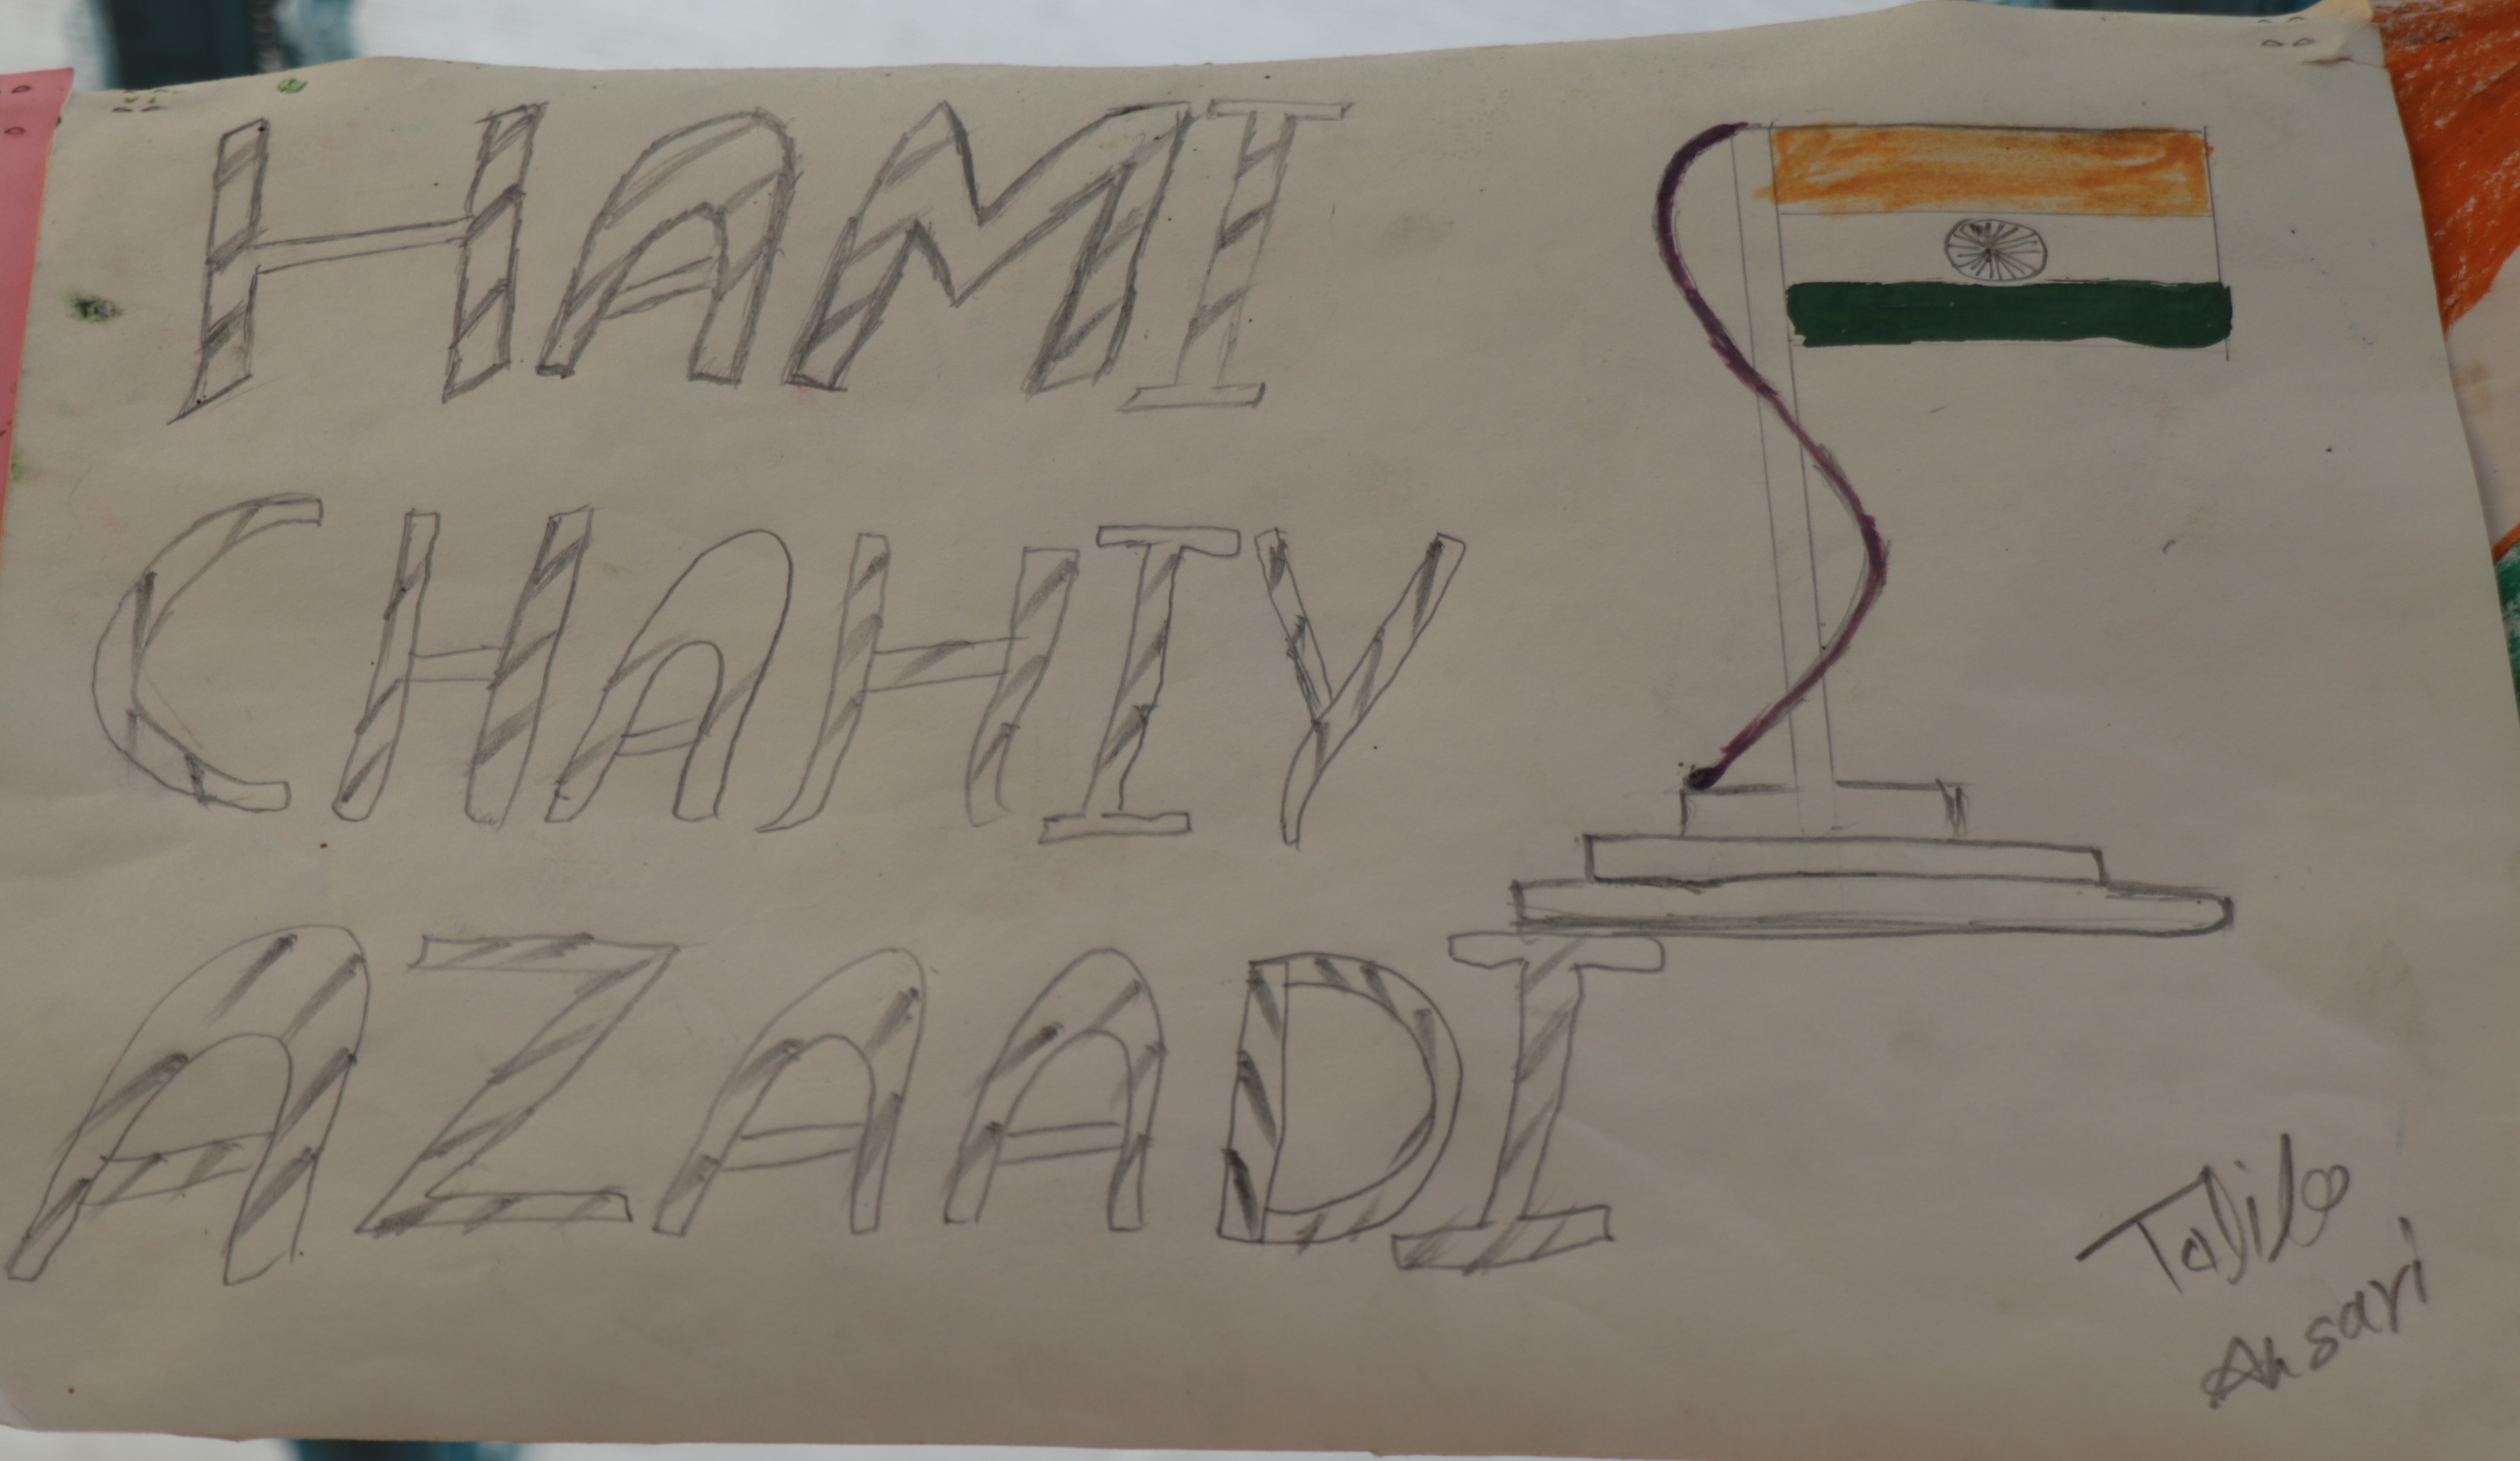 HAMI
CHAHIY
AZAADI
Talib
Ansari